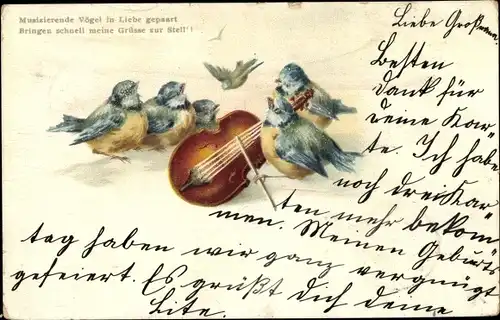 Musizierende Vögel in Liebe gepaart
Bringen schnell meine Grüsse zur Stell'!
Liebe Großmama
Besten
Dank für
deine Kar-
te. Ich habe
noch drei Kar-
ten mehr bekom-
men. Meinen Geburts-
tag haben wir ganz vergnügt
gefeiert. Es grüßt Dich deine
Lite.